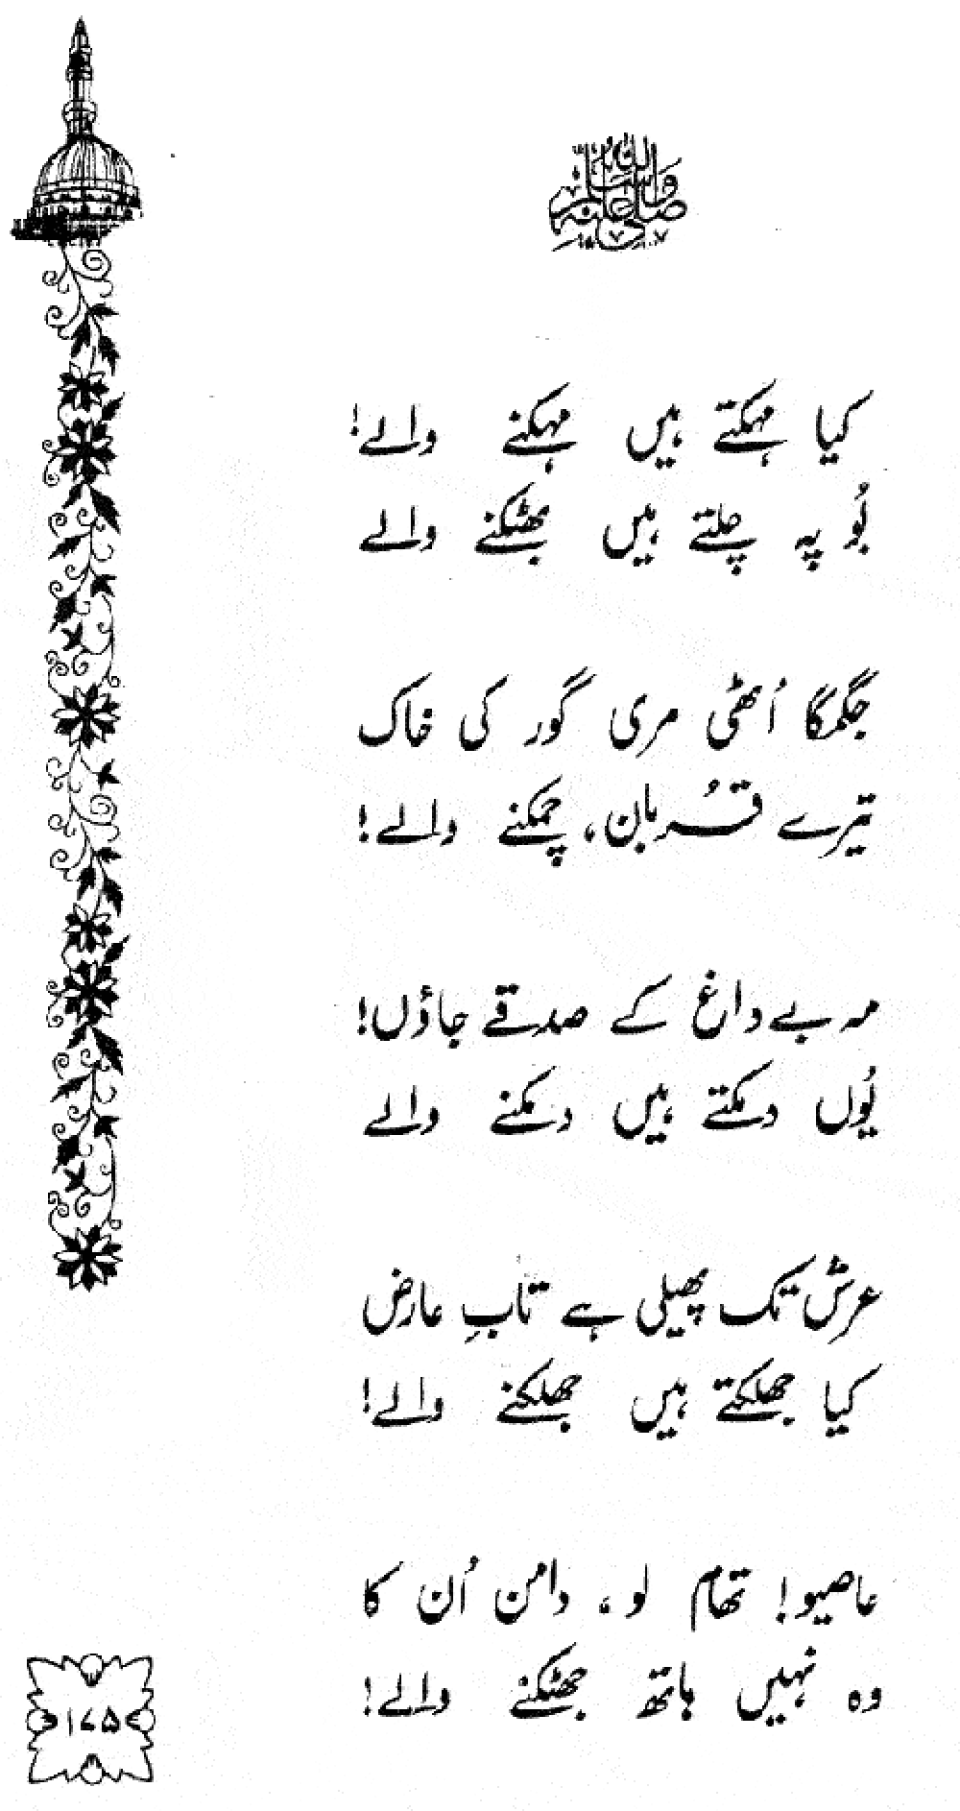 صلی اللہ علیہ وسلم
کیا مہکتے ہیں مہکنے والے!
بُو پہ چلتے ہیں بھٹکنے والے
جگمگا اُٹھی مری گور کی خاک
تیرے قُربان، چمکنے والے!
مہ بے داغ کے صدقے جاؤں!
یُوں دمکتے ہیں دمکنے والے
عرش تک پھیلی ہے تابِ عارض
کیا جھلکتے ہیں جھلکنے والے!
عاصیو! تھام لو، دامن اُن کا
وہ نہیں ہاتھ جھٹکنے والے!
۱۷۵